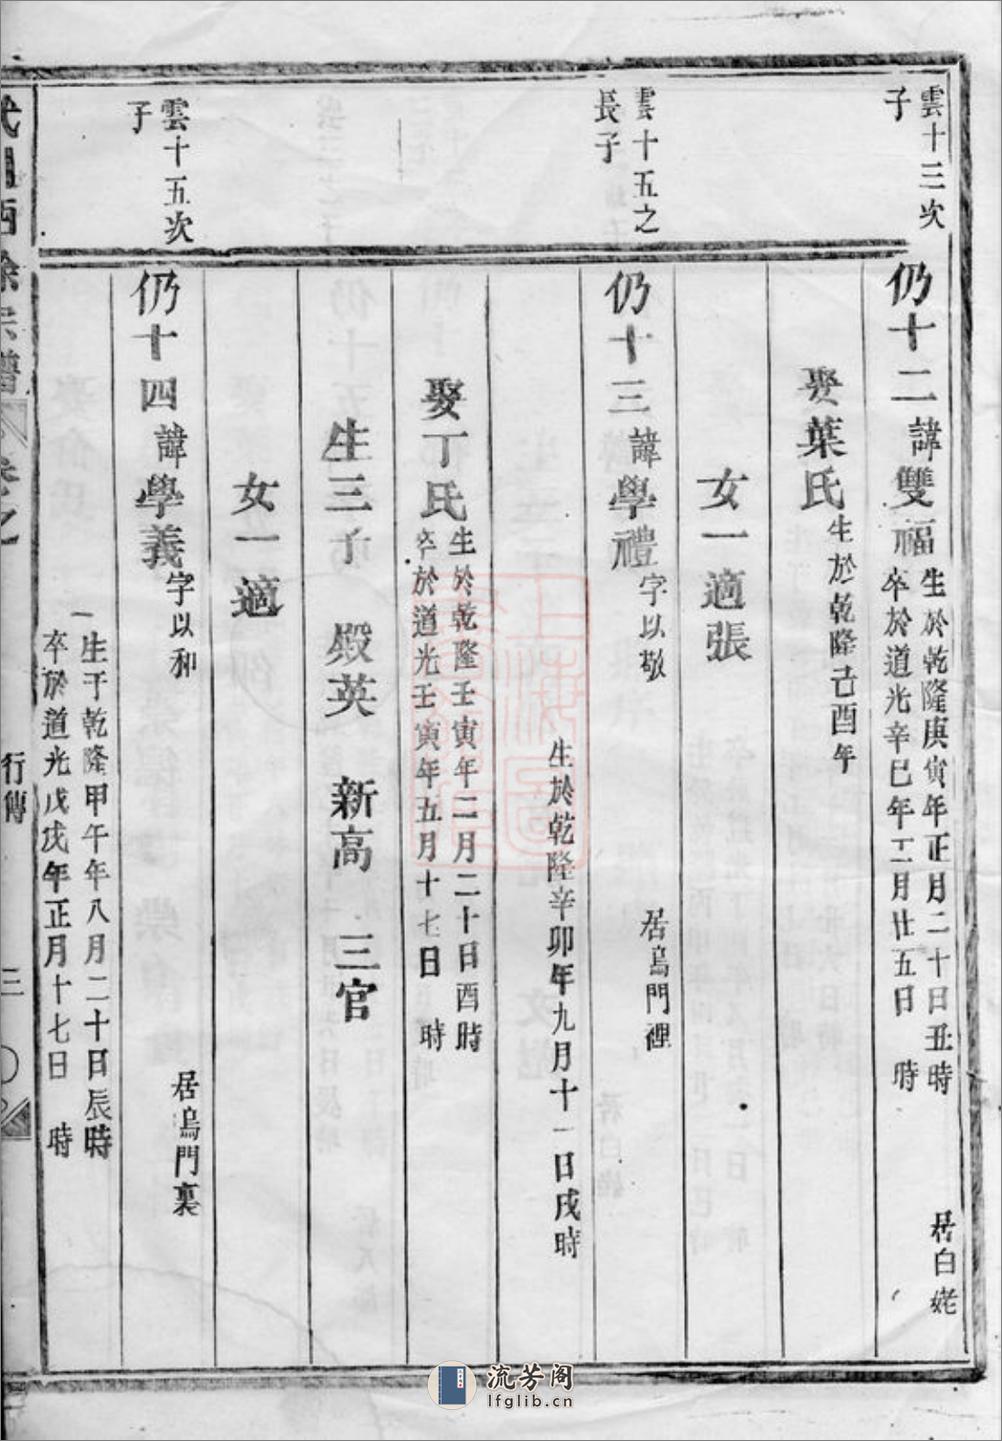 雲十三次
子
仍十二諱雙福
生於乾隆庚寅年正月二十日丑時
卒於道光辛巳年二月廿五日 時
居白姥
娶葉氏
生於乾隆己酉年
女一適張
雲十五之
長子
仍十三諱學禮
字以敬
居烏門裡
生於乾隆辛卯年九月十一日戌時
娶丁氏
生於乾隆壬寅年二月二十日酉時
卒於道光壬寅年五月十七日 時
生三子 殿英 新高 三官
女一適
雲十五次
子
仍十四諱學義
字以和
居烏門裏
生于乾隆甲午年八月二十日辰時
卒於道光戊戌年正月十七日 時
西徐宗譜
卷之
行傳
三
流芳阁
lfglib.cn